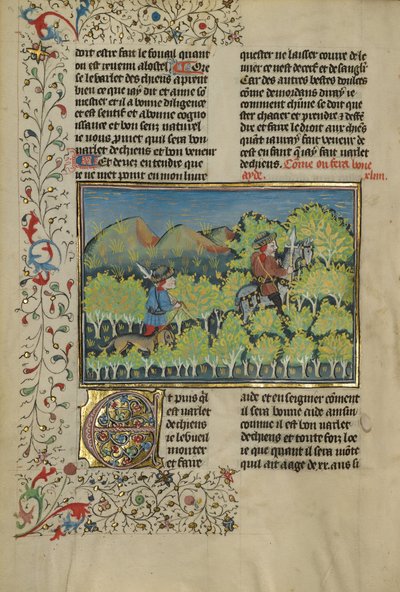 doit estre fait le fouail quant
on est revenu a lostel. Et se
se le varlet des chiens aprent
bien ce que iay dit et aime so
mestier et il a bonne diligence
et est sentif et a bonne cogno
issance et bon sens naturel
ie vous pleuir quil sera bon
varlet de chiens et bon veneur
Et devez entendre que
ie ne met point en mon livre
quester ne laisser courre de le
urier ce nest de cerf et de sanglr
Car des autres bestes doulces
come de mordans diray ie
comment chune se doit que
ster chacier et prendre et deffe
dire et faire le droit aux chies
quant iauray fait veneur de
cest en faut qui ay fait varlet
de chiens. Come on fera bone
ayde. xliiii.
Et puis quil
est varlet
de chiens
ie le vueil
monter
et faire
aide et enseignier coment
il sera bonne aide ainsin
comme il est bon varlet
de chiens et toute son loe
ie que quant il sera mote
quil ait aage de xx. ans si